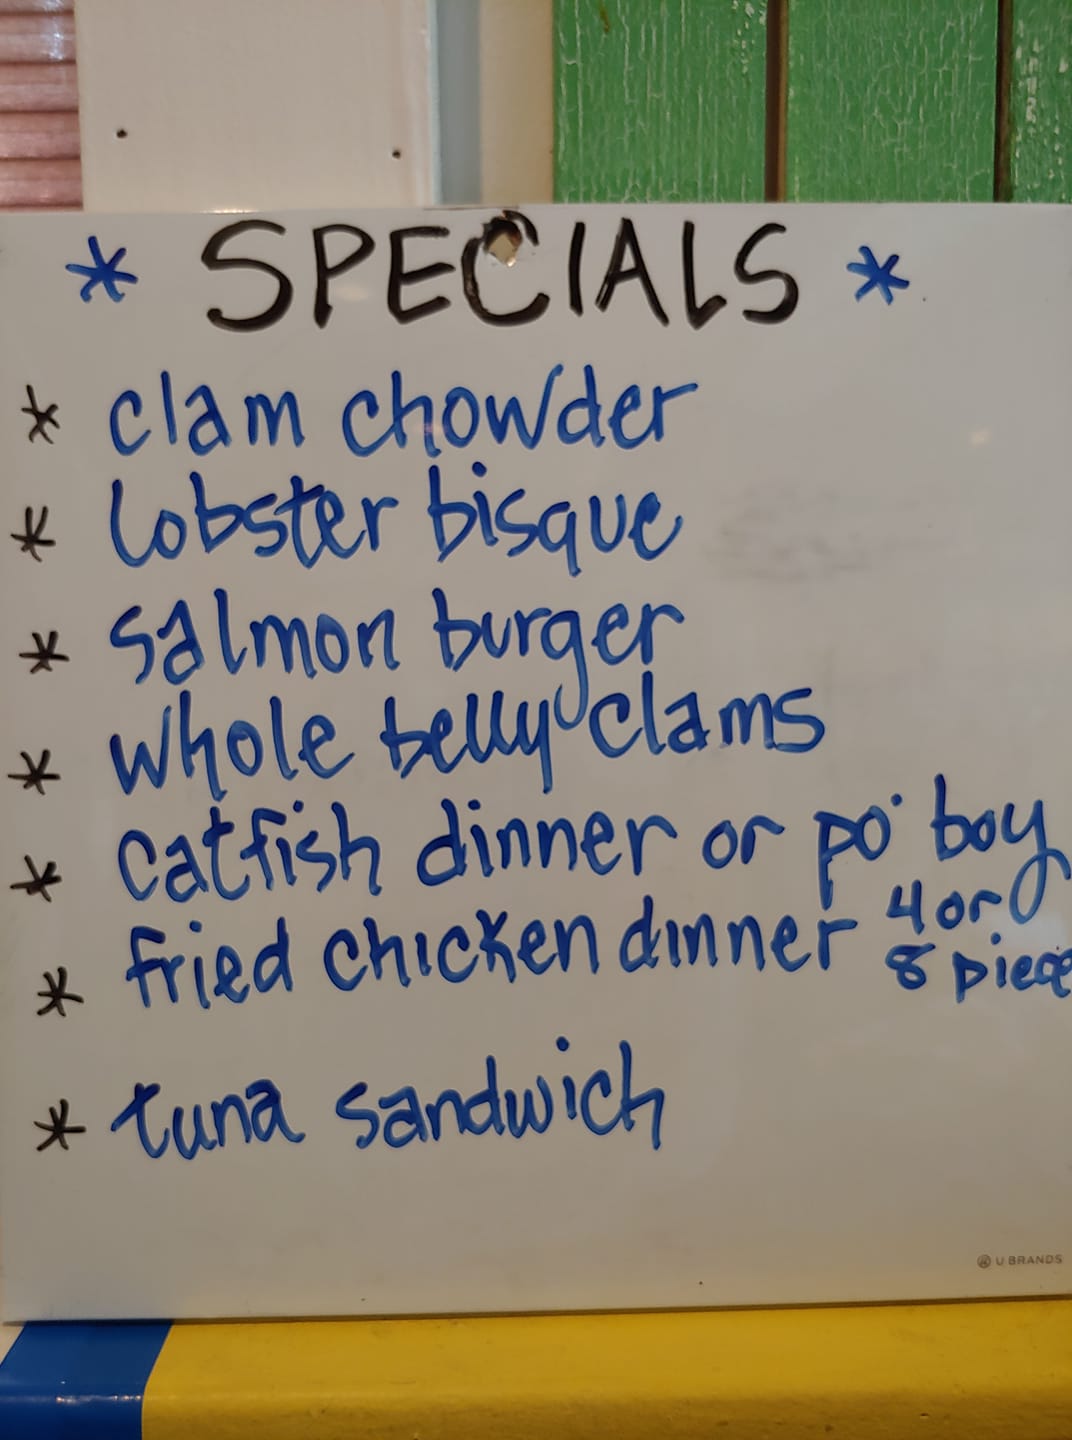 * SPECIALS *
* clam chowder
* lobster bisque
* salmon burger
* whole belly clams
* catfish dinner or po' boy
* fried chicken dinner 4 or
8 piece
* tuna sandwich
U BRANDS